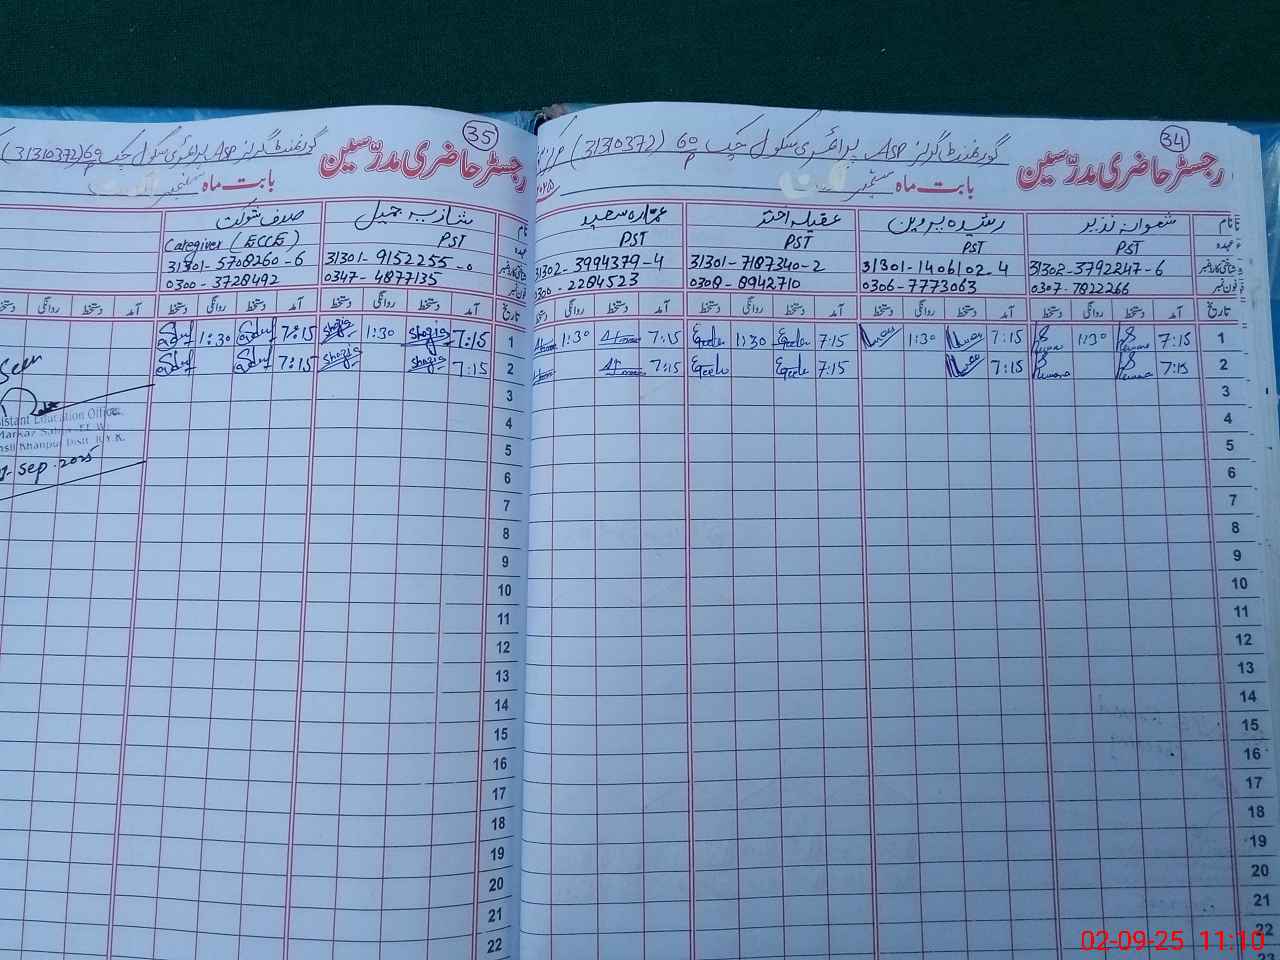 34
رجسٹر حاضری مدرّسین
گورنمنٹ گرلز ASP پرائمری سکول چک 69 (31310372)
بابت ماہ ستمبر
نام شعوانہ نذیر رشیدہ پروین عقیلہ اختر عمارہ سعید
عہدہ PST PST PST PST
31302-3792247-6 31301-1406102-4 31301-7187340-2 31302-3994379-4
فون نمبر 0307-7822266 0306-7773063 0308-8942710 0300-2284523
تاریخ آمد دستخط روانگی دستخط آمد دستخط روانگی دستخط آمد دستخط روانگی دستخط آمد دستخط روانگی
1 7:15 1:30 7:15 1:30 7:15 1:30 7:15 1:30
2 7:15 7:15 7:15 7:15
3
4
5
6
7
8
9
10
11
12
13
14
15
16
17
18
19
20
21
22
23
35
رجسٹر حاضری مدرّسین
گورنمنٹ گرلز ASP پرائمری سکول چک 69 (31310372)
بابت ماہ ستمبر
نام شازیہ جمیل صدف شوکت
عہدہ PST Caregiver (ECCE)
31301-9152255-0 31301-5708260-6
0347-4877135 0300-3728492
تاریخ آمد دستخط روانگی دستخط آمد دستخط روانگی دستخط آمد دستخط روانگی
1 7:15 Shazia 1:30 Shazia 7:15 Sadaf 1:30 Sadaf
2 7:15 Shazia Shazia 7:15 Sadaf Sadaf
3
4
5
6
7
8
9
10
11
12
13
14
15
16
17
18
19
20
21
22
Seen
Education Officer
Markaz
Khanpur Distt R.Y.K.
Sep. 2025
02-09-25 11:10